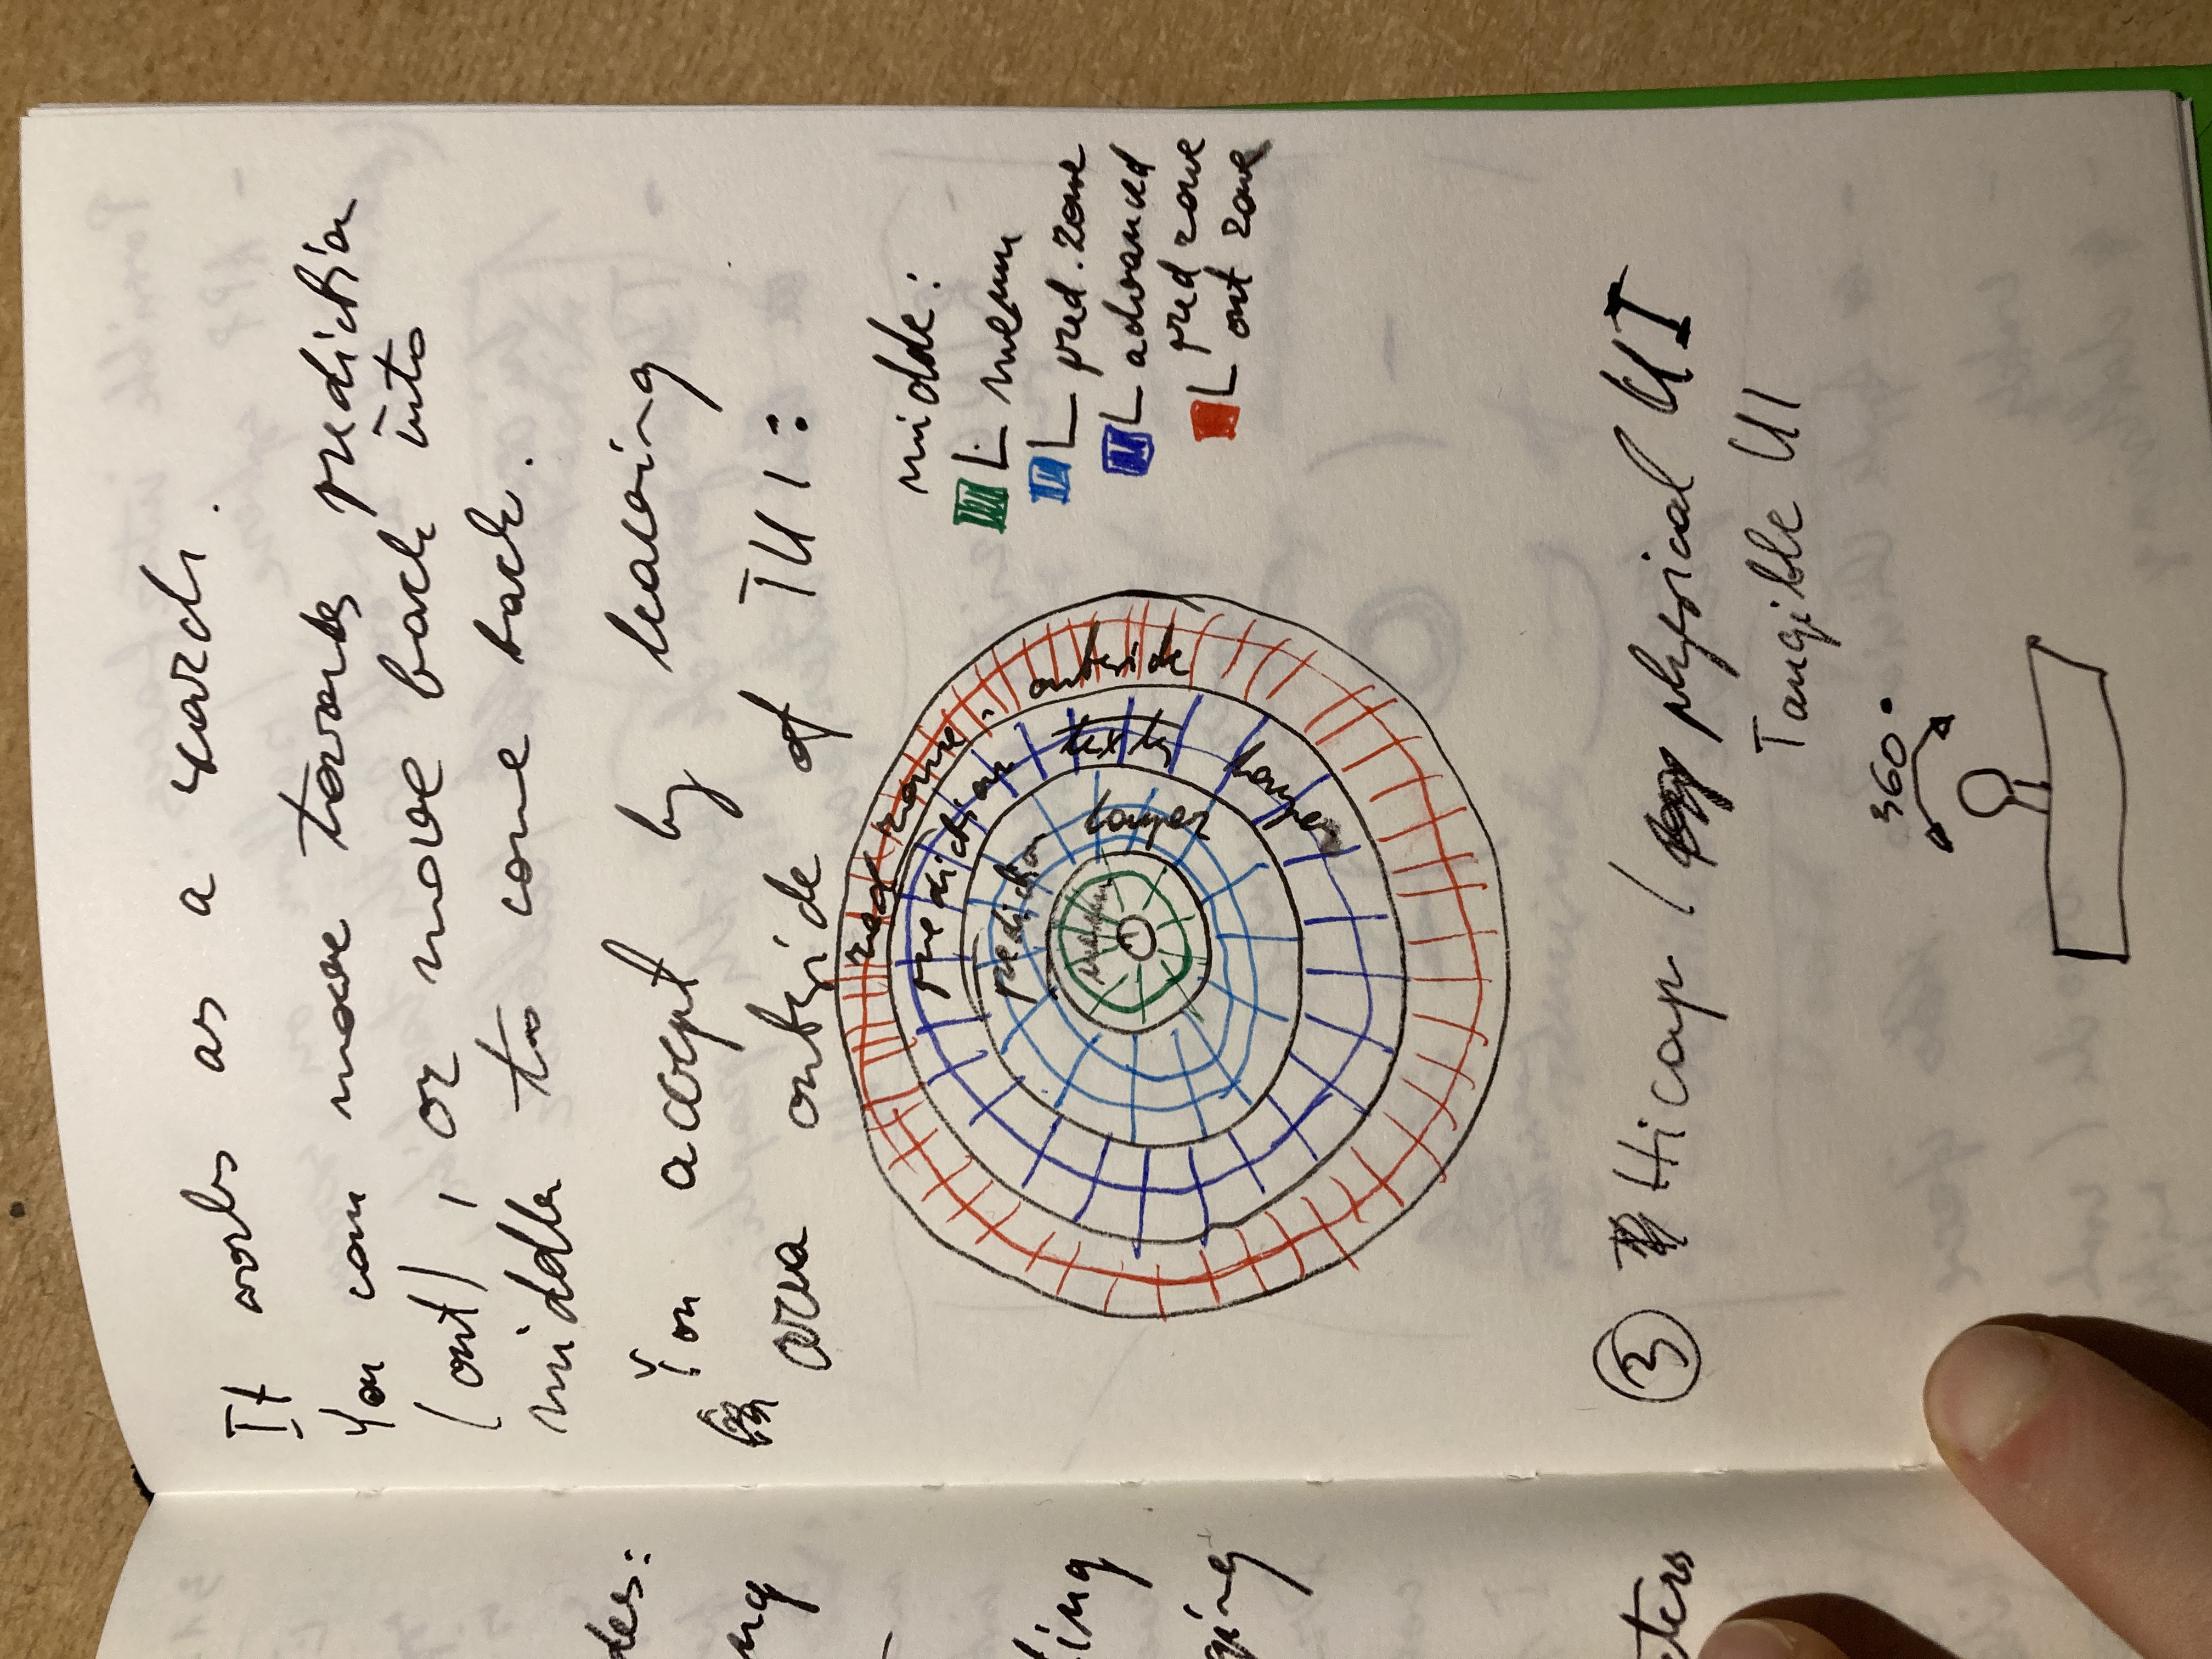 It works as a
You can move towards prediction
(out), or move back into
middle to come back.
You accept by leaving
area outside of TUI:
middle:
L menu
L pred. zone
L advanced
pred zone
L out zone
zone
outside
prediction
texty
longer
prediction
longer
menu
3 Hicap / physical UI
Tangible UI
360°
des:
ng
ding
ging
eters